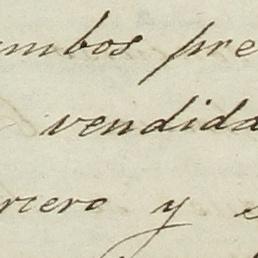 ambos pre
vendida
rcero y s